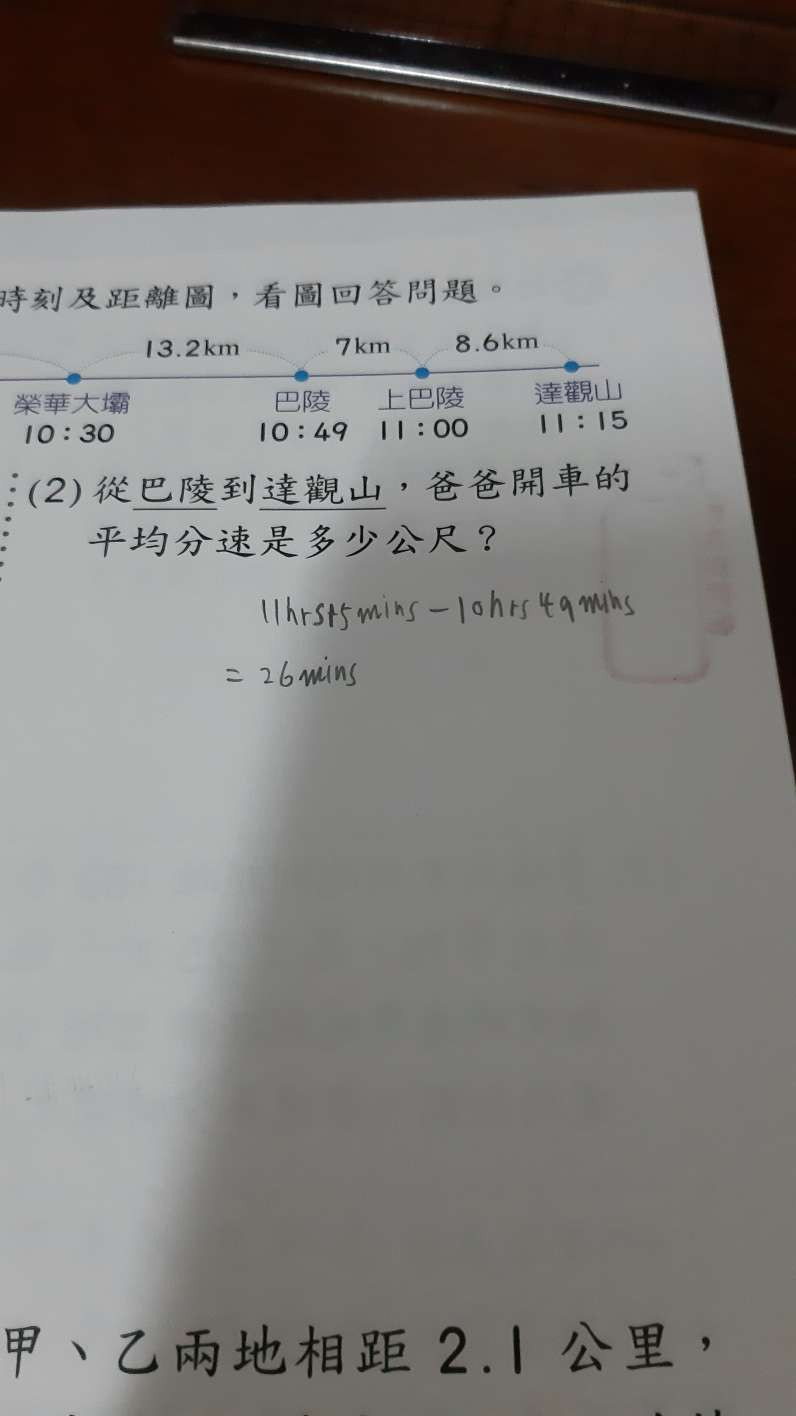 時刻及距離圖，看圖回答問題。
13.2km 7km 8.6km
榮華大壩 巴陵 上巴陵 達觀山
10：30 10：49 11：00 11：15
(2) 從巴陵到達觀山，爸爸開車的
平均分速是多少公尺？
11hrs15mins - 10hrs 49mins
= 26mins
甲、乙兩地相距 2.1 公里，